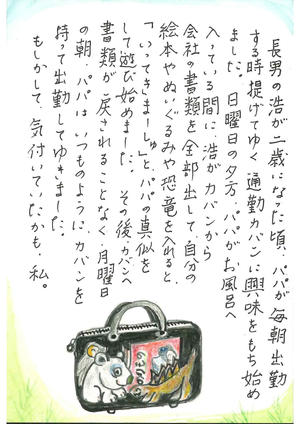 長男の浩が二歳になった頃、パパが毎朝出勤
する時提げてゆく通勤カバンに興味をもち始め
ました。日曜日の夕方、パパがお風呂へ
入っている間に、浩がカバンから
会社の書類を全部出して、自分の
絵本やぬいぐるみや恐竜を入れると、
「いってきまーしゅ」と、パパの真似を
して遊び始めました。その後カバンへ
書類が戻されることなく、月曜日
の朝、パパはいつものようにカバンを
持って出勤してゆきました。
もしかして、気付いていたかも、私。